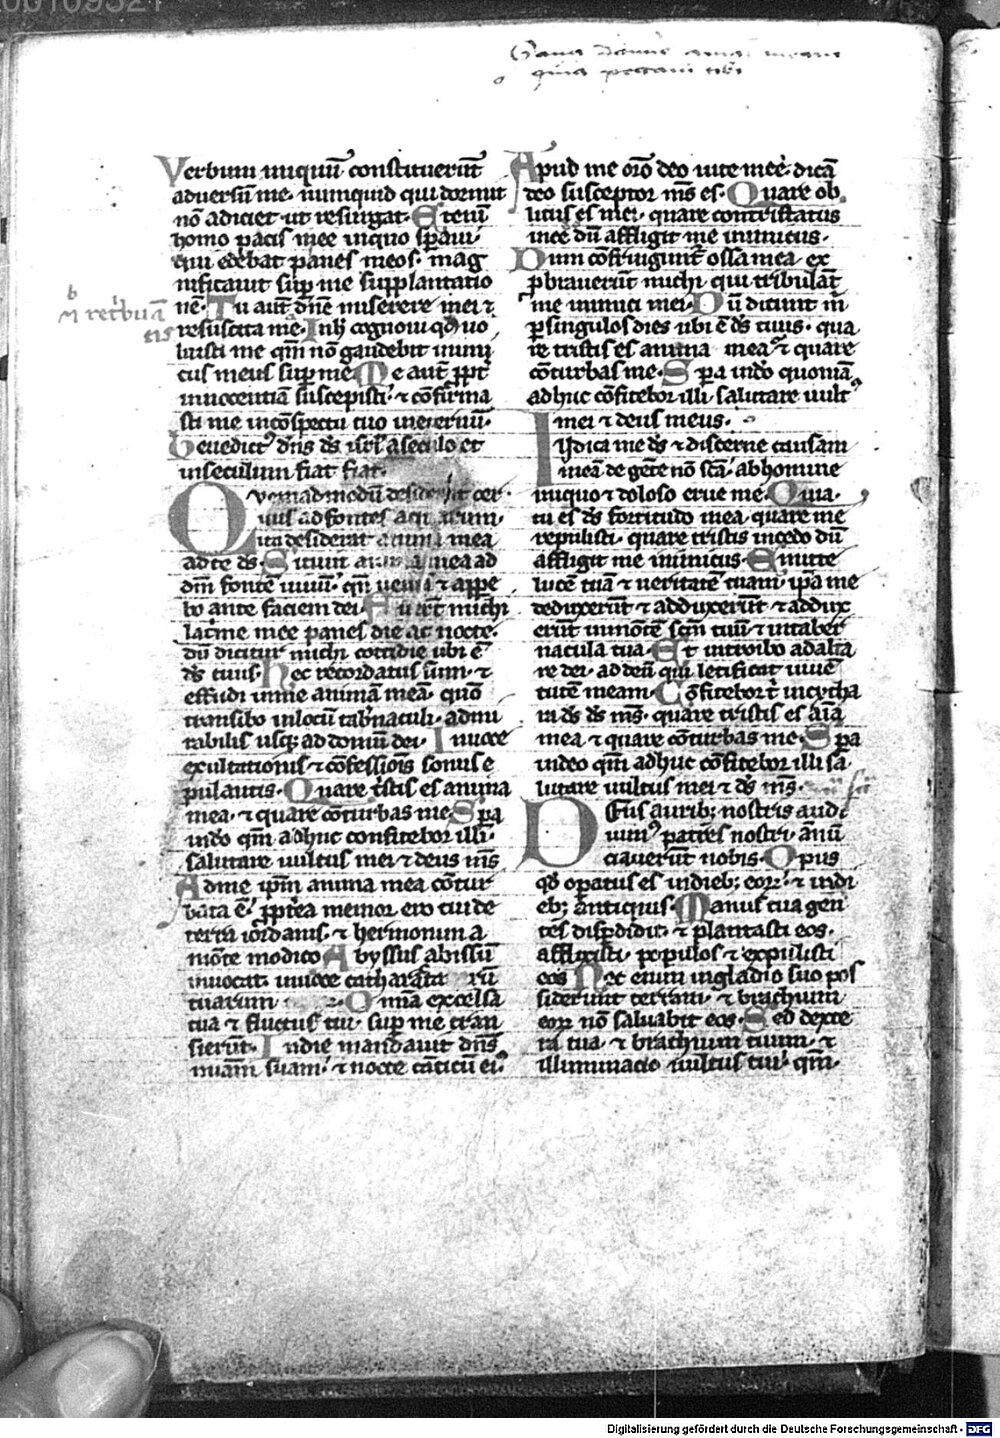 Sana domine animam meam
quia peccavi tibi
Verbum iniquū constituerūt
adversū me· numquid qui dormit
nō adiciet ut resurgat· Eteni̅
homo pacis mee inquo speraui·
qui edebat panes meos· mag
nificauit sup me supplantatio
nē· Tu aut̄ dn̄e miserere mei ⁊
resuscita me· Inh̄ cognoui qđ uo
luisti me qm̄ nō gaudebit inimi
cus meus sup me· Me aut̄ ꝓpt̄
innocentiā suscepisti· ⁊ cōfirma
sti me incōspectu tuo ineternū·
Benedict᷒ dn̄s ds̄ isrl̄ aseculo et
inseculum fiat fiat·
Quemadmodū desiderat cer
uus ad fontes aquarum·
ita desiderat anima mea
ad te ds̄· Sitiuit anima mea ad
dm̄ fontē uiuū· qm̄ ueniā ⁊ appe
bo ante faciem dei· Fuert̄ michi
lacrime mee panes die ac nocte·
dū dicitur michi cottidie ubi ē
ds̄ tuus· Hec recordatus sum· ⁊
effudi inme animam meā· quō
transibo inlocū tab̄naculi· admi
rabilis usq; ad domū dei· Inuoce
exultationis ⁊ cōfessiōis sonus e
pulantis· Quare tstis es anima
mea· ⁊ quare cōturbas me· Spa
indo qm̄ adhuc confitebor illi·
salutare uultus mei ⁊ deus ms̄
Adme ipm̄ anima mea cōtur
bata ē· ꝓpt̄ea memor ero tui de
terra iordanis· ⁊ hermonum a
mōte modico· Abyssus abissū
inuocat· inuoce catharactarū
tuarum· Omīa excelsa
tua ⁊ fluctus tui· sup me tran
sierūt· Indie mandauit dn̄s
miam̄ suam· ⁊ nocte cāticū ei᷒·
Apud me orō deo uite mee· dicā
deo susceptor ms̄ es· Quare ob
litus es mei· quare contristatus
incedū affligit me inimicus·
Dum cōfringunt̄ ossa mea· ex
ꝓbrauerūt michi qui tribulāt
me inimici mei· Dū dicunt m̄
ꝑsingulos dies ubi ē ds̄ tuus· qua
re tristis es anima mea· ⁊ quare
cōturbas me· Spa indo quoniā
adhuc cōfitebor illi· salutare uult᷒
mei ⁊ deus meus·
Iudica me ds̄ ⁊ discerne causam
meā de gēte nō scā· abhomine
iniquo ⁊ doloso erue me· Quia
tu es ds̄ fortitudo mea· quare me
repulisti· quare tristis incedo dū
affligit me inimicus· Emitte
lucē tuā ⁊ ueritatē tuam· ipa me
deduxerūt ⁊ adduxerūt ⁊ addux
erūt inmōtē scm̄ tuū· ⁊ intaber
nacula tua· Et introibo adalta
re dei· ad deū qui letificat iuuē
tutē meam· Cōfitebor t̄ incytha
ra ds̄ ds̄ ms̄· quare tristis es aīa
mea ⁊ quare cōturbas me· Spa
indeo qm̄ adhuc cōfitebor illi sa
lutare uultus mei ⁊ ds̄ ms̄·
Deus aurib; nostris audi
uim᷒ patres nostri· annū
ciauerūt nobis· Opus
qđ opatus es indieb; eoꝝ· ⁊ indi
eb; antiquis· Manus tua gen
tes disꝑdidit· ⁊ plantasti eos·
afflixisti· populos ⁊ expulisti
eos· Nec enim ingladio suo pos
siderunt terram· ⁊ brachium
eoꝝ nō saluabit eos· Sed dexte
ra tua· ⁊ brachium tuum· ⁊
illuminacio uultus tui· qm̄·
Digitalisierung gefördert durch die Deutsche Forschungsgemeinschaft - DFG